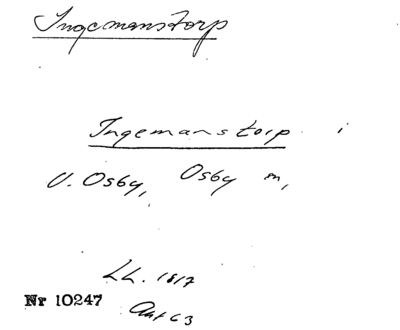 Ingemanstorp
Ingemanstorp i
V. Osby, Osby sn,
LL. 1817
Nr 10247